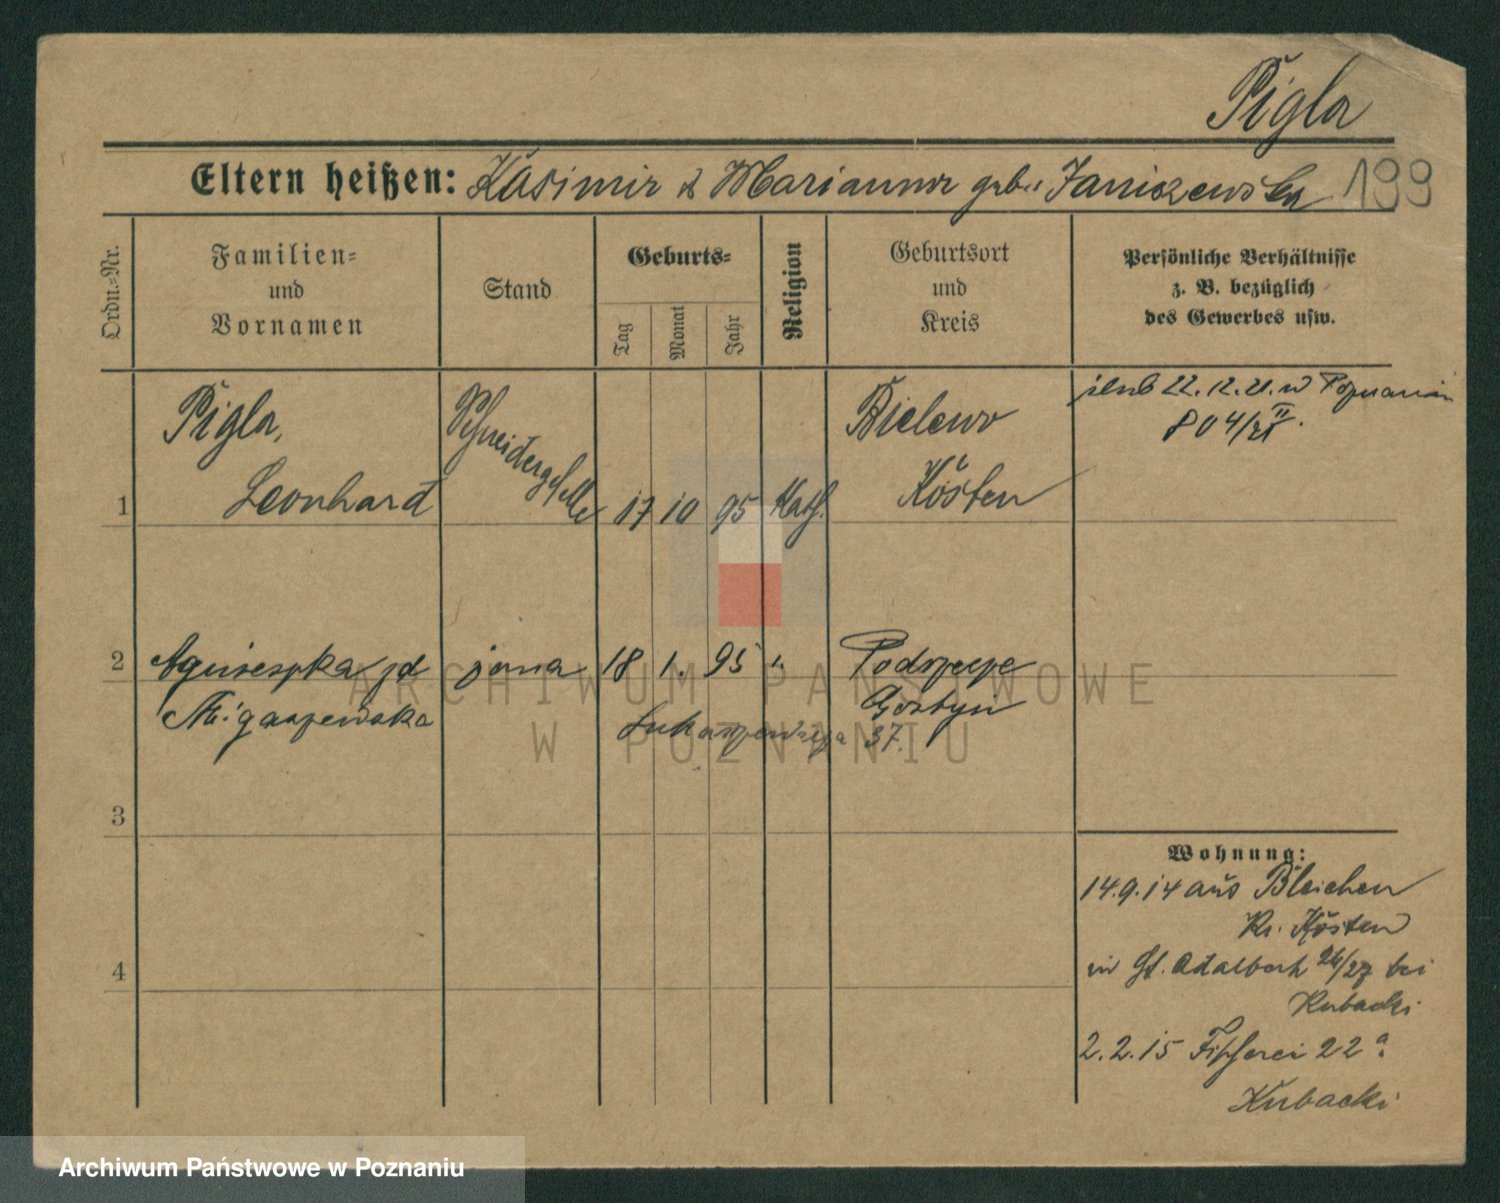 Pigla
Eltern heißen: Kasimir & Marianna geb. Janiszewska 199
Ordn.-Nr.
Familien-
und
Vornamen
Stand
Geburts-
Tag
Monat
Jahr
Religion
Geburtsort
und
Kreis
Persönliche Verhältnisse
z. B. bezüglich
des Gewerbes usw.
Pigla,
Leonhard
Schneidergeselle
1
17 10 95 Kath.
Bielewo
Kosten
ślub 22.12.21. w Poznaniu
804/21 II.
2 Agnieszka zd
żona 18 1. 95 "
Podrzecze
Gostyń
37.
3
4
Wohnung:
14.9.14 aus Bleichen
Kr. Kosten
in St. Adalbert 26/27 bei
Kubacki
2.2.15 Fischerei 22a
Kubacki
ARCHIWUM PAŃSTWOWE
W POZNANIU
Archiwum Państwowe w Poznaniu